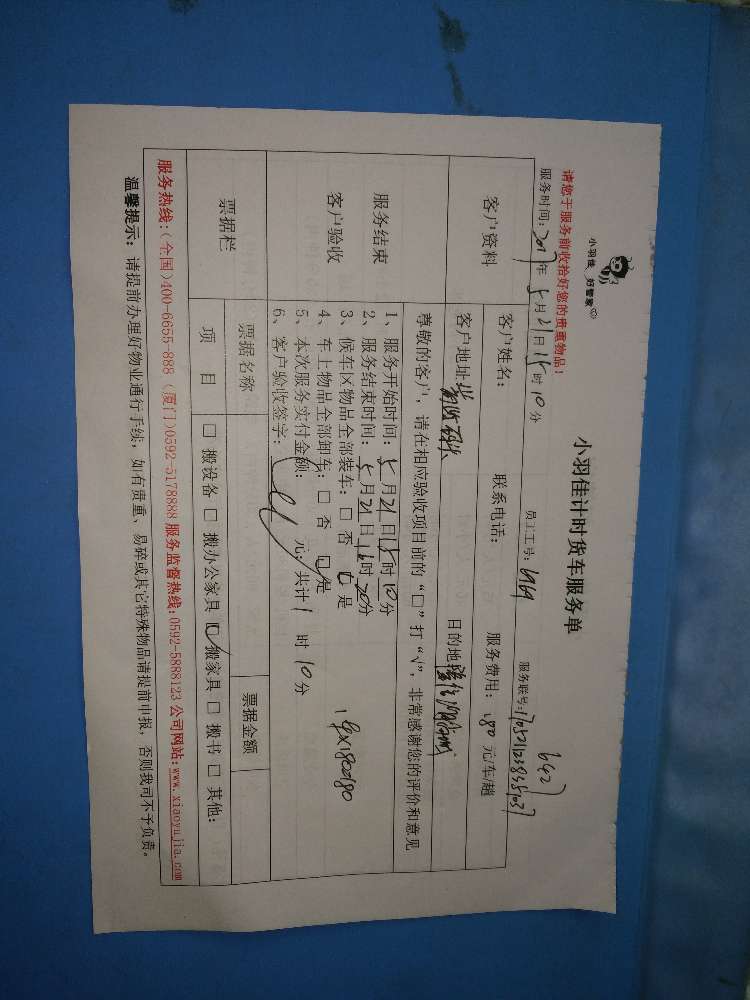 小羽佳 好管家
小羽佳计时货车服务单
请您于服务前收拾好您的贵重物品！
642
服务时间：2017年 5月21日15时10分 员工工号： 服务联号：
客户资料
客户姓名： 联系电话： 服务费用：180 元/车/趟
客户地址： 码头 目的地：
尊敬的客户，请在相应验收项目前的“□”打“√”，非常感谢您的评价和意见
服务结束
客户验收
1、服务开始时间：5月21日15时10分
2、服务结束时间：5月21日16时20分
3、候车区物品全部装车：□ 否 □ 是
4、车上物品全部卸车：□ 否 □ 是
5、本次服务实付金额： 元；共计1 时 10分
6、客户验收签字：
票据栏
票据名称 票据金额
项 目 □ 搬设备 □ 搬办公家具 □ 搬家具 □ 搬书 □ 其他：
服务热线：（全国）400-6655-888 （厦门）0592-5178888 服务监督热线：0592-5888123 公司网站：www.xiaoyujia.com
温馨提示：请提前办理好物业通行手续，如有贵重、易碎或其它特殊物品请提前申报，否则我司不予负责。